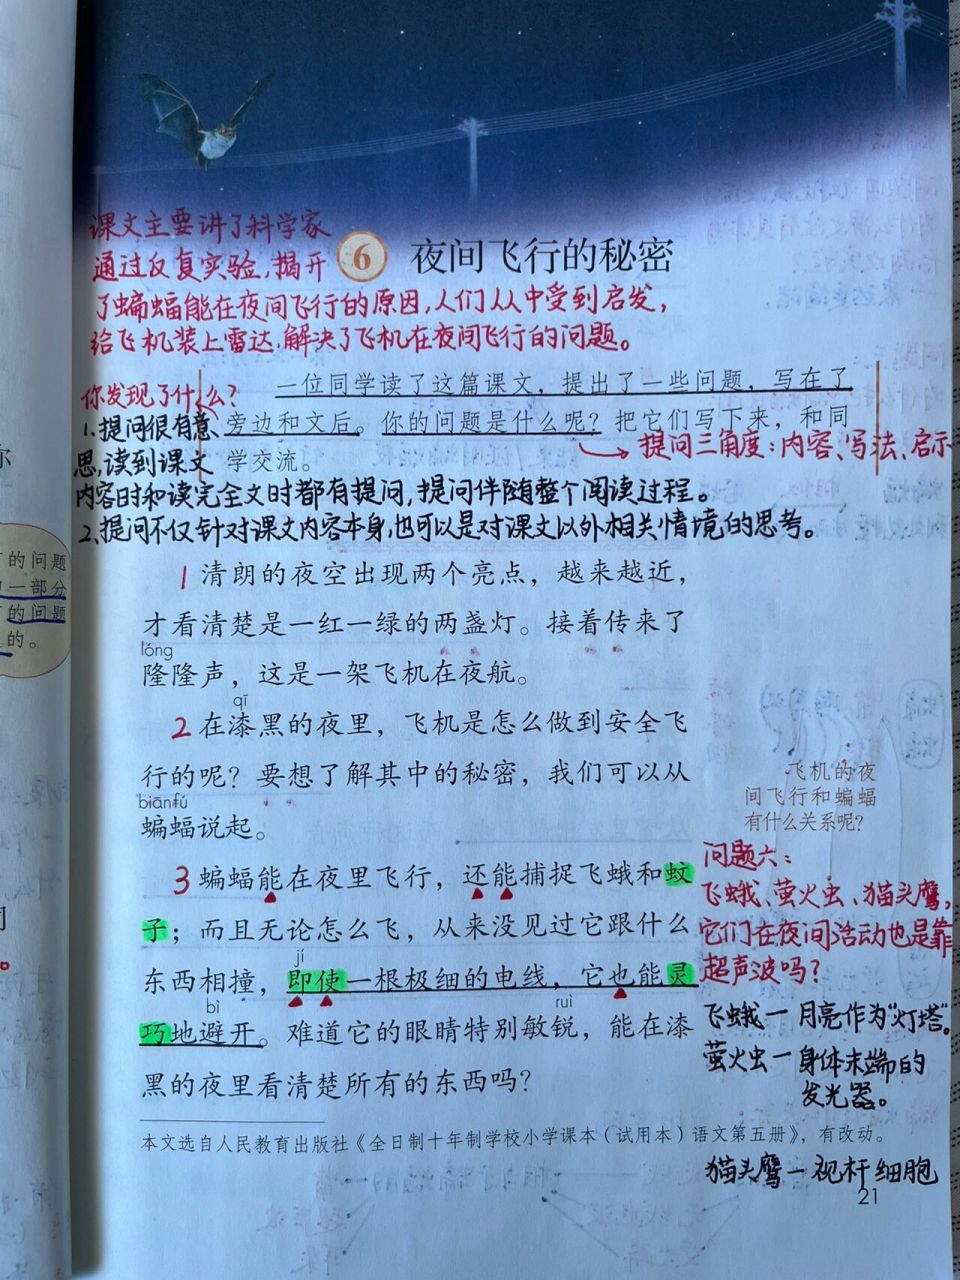 课文主要讲了科学家
通过反复实验,揭开
6 夜间飞行的秘密
了蝙蝠能在夜间飞行的原因,人们从中受到启发,
给飞机装上雷达,解决了飞机在夜间飞行的问题。
你发现了什么?
一位同学读了这篇课文，提出了一些问题，写在了
旁边和文后。你的问题是什么呢？把它们写下来，和同
学交流。
提问三角度:内容、写法、启示
1.提问很有意
思,读到课文
内容时和读完全文时都有提问,提问伴随整个阅读过程。
2.提问不仅针对课文内容本身,也可以是对课文以外相关情境的思考。
的问题
一部分
的问题
的。
1 清朗的夜空出现两个亮点，越来越近，
才看清楚是一红一绿的两盏灯。接着传来了
lóng
隆隆声，这是一架飞机在夜航。
qī
2 在漆黑的夜里，飞机是怎么做到安全飞
行的呢？要想了解其中的秘密，我们可以从
biānfú
蝙蝠说起。
飞机的夜
间飞行和蝙蝠
有什么关系呢？
3 蝙蝠能在夜里飞行，还能捕捉飞蛾和蚊
子；而且无论怎么飞，从来没见过它跟什么
jí
东西相撞，即使一根极细的电线，它也能灵
bì ruì
巧地避开。难道它的眼睛特别敏锐，能在漆
黑的夜里看清楚所有的东西吗？
问题六:
飞蛾、萤火虫、猫头鹰,
它们在夜间活动也是靠
超声波吗?
飞蛾—月亮作为“灯塔”。
萤火虫—身体末端的
发光器。
猫头鹰—视杆细胞
本文选自人民教育出版社《全日制十年制学校小学课本（试用本）语文第五册》，有改动。
21